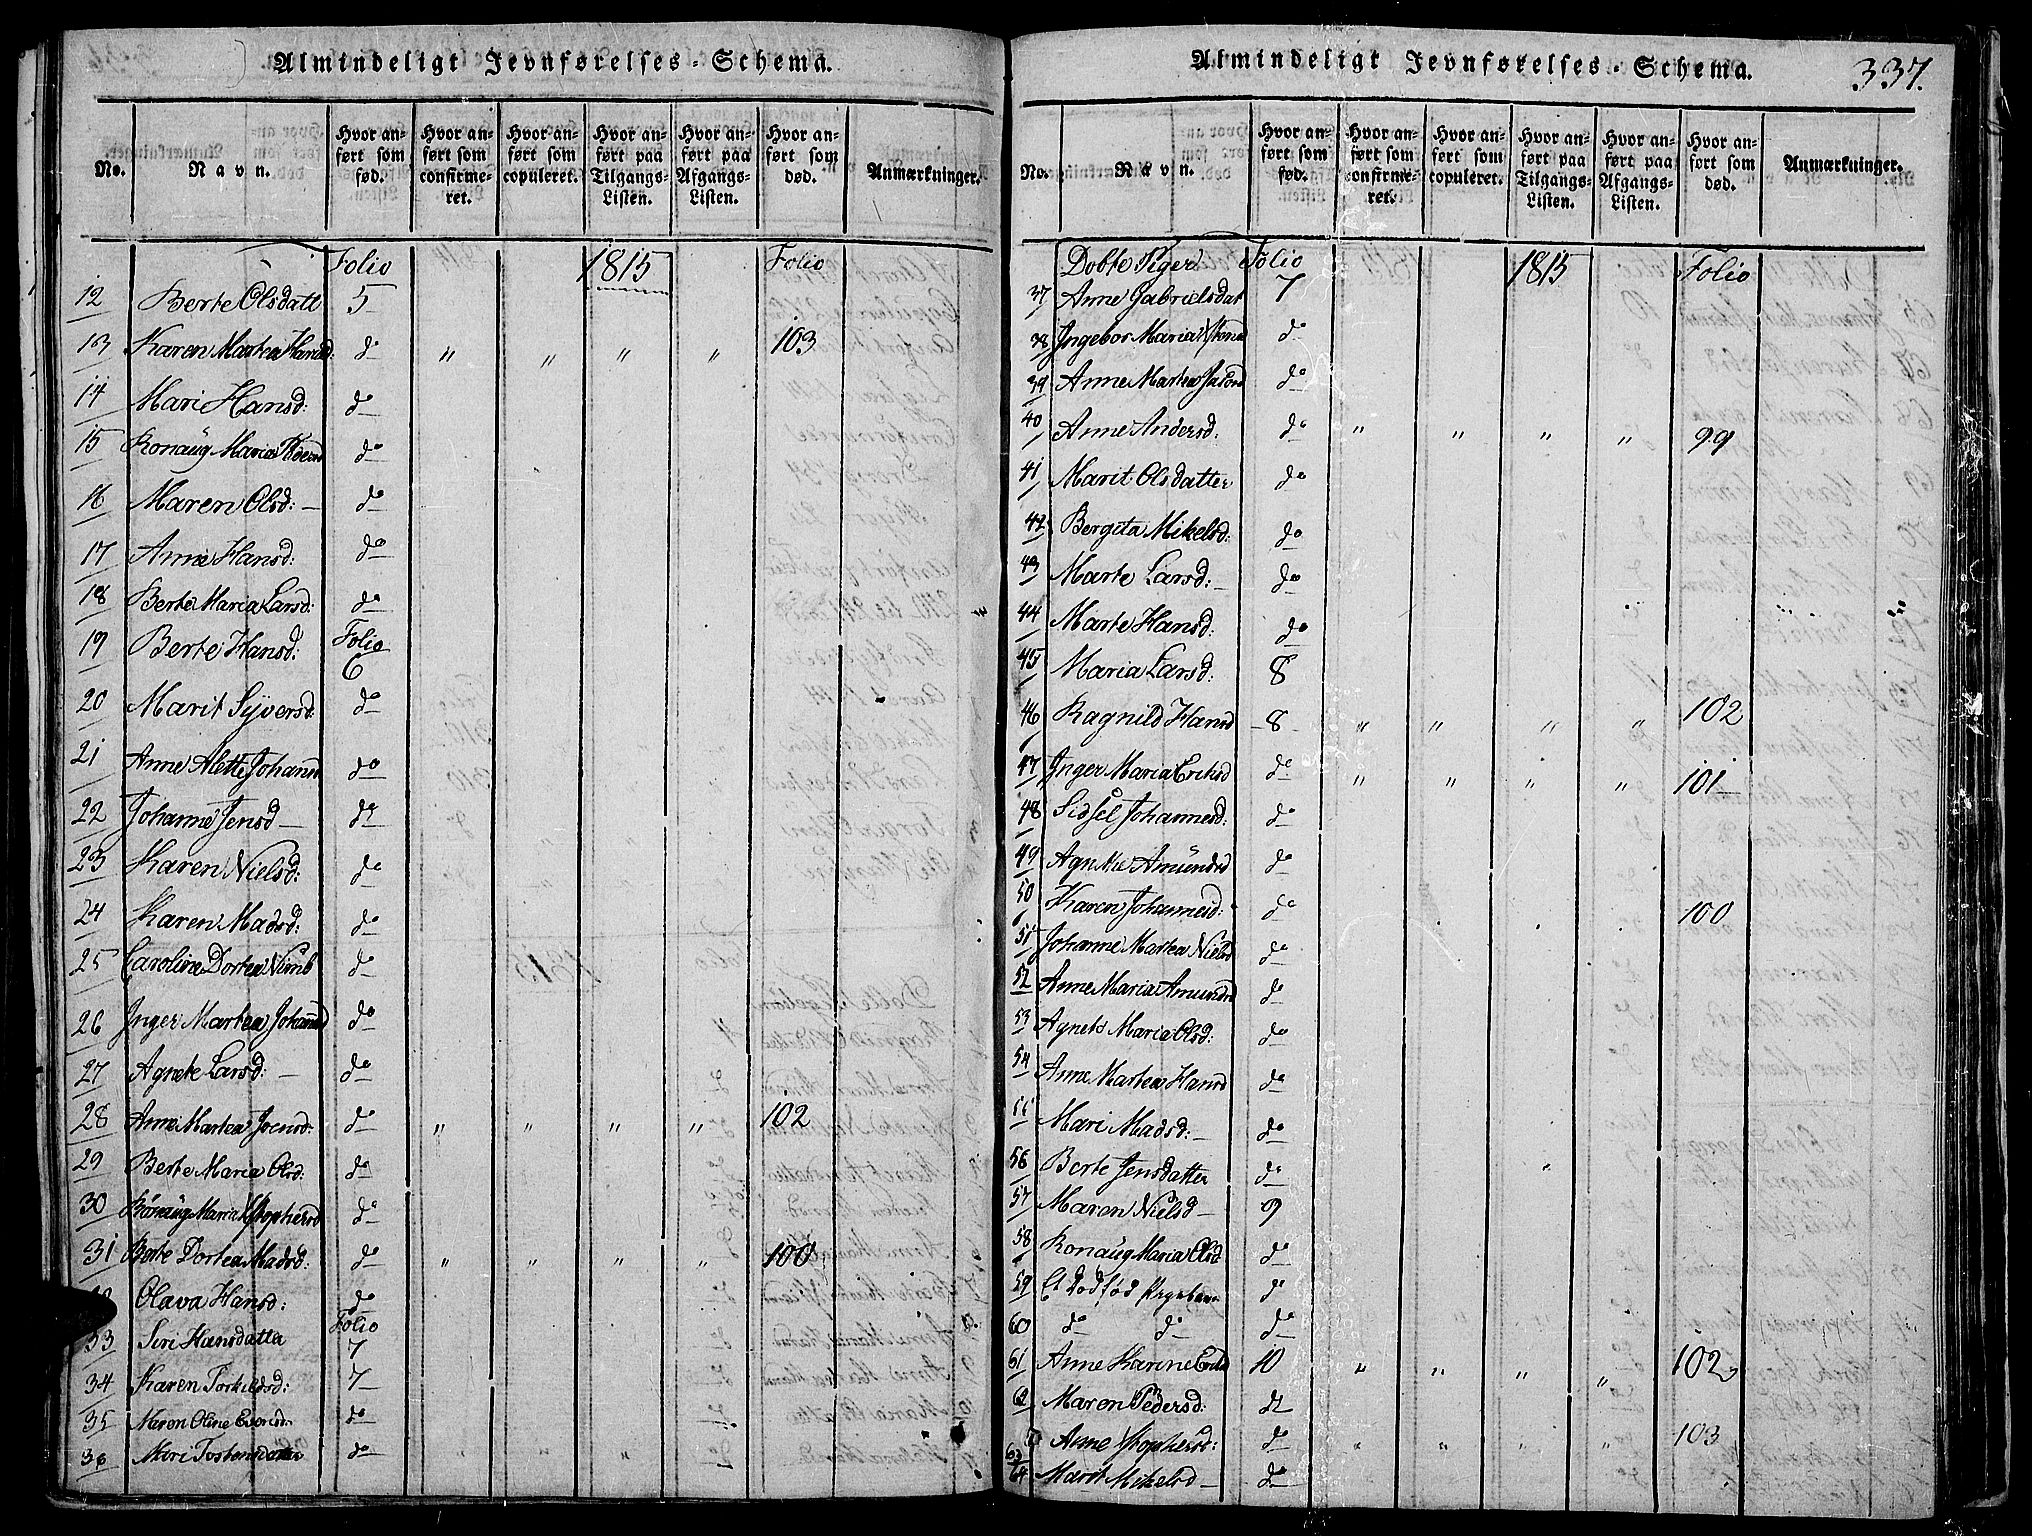 Almindeligt Jevnførelses-Schema.
No. Navn. Hvor anført som fød. Hvor anført som confirmeret. Hvor anført som copuleret. Hvor anført paa Tilgangs-Listen. Hvor anført paa Afgangs-Listen. Hvor anført som død. Anmærkninger.
Folio 1815 Folio
12 Berte Olsdatt 5
13 Karen Martea Hansd: do " " " " 103
14 Mari Hansd: do
15 Ronaug Maria do
16 Maren Olsd: do
17 Anne Hansd: do
18 Berte Maria Larsd: do
19 Berte Hansd: Folio 6
20 Marit Syversd do
21 Anne Alette Johann do
22 Johanne Jensd do
23 Karen Nielsd: do
24 Karen Madsd: do
25 Caroline Dortea Nimb do
26 Inger Martea Johannsd do
27 Agnete Larsd: do
28 Anne Martea Joensd: do " " " " 102
29 Berte Maria Olsd: do
30 Rönaug Maria Kstophersd do
31 Berte Dortea Madsd: do " " " " 100
Olava Hansd: do
33 Siri Hansdatte Folio 7
34 Karen Torkildsd: 7
35 Maren Oline Evensd. do
36 Mari Tostensdatter do
Almindeligt Jevnførelses-Schema. 337.
No. Navn. Hvor anført som fød. Hvor anført som confirmeret. Hvor anført som copuleret. Hvor anført paa Tilgangs-Listen. Hvor anført paa Afgangs-Listen. Hvor anført som død. Anmærkninger.
Døbte Piger Folio 1815 Folio
37 Anne Gabrielsdat 7
38 Ingebor Maria do
39 Anne Martea do
40 Anne Andersd: do " " " " 99
41 Marit Olsdatter do
42 Bergita Mikelsd: do
43 Marte Larsd: do
44 Marte Hansd: do
45 Maria Larsd: 8
46 Ragnild Hansd 8 " " " " 102
47 Inger Maria Eriksd do " " " " 101
48 Sidsel Johannesd: do
49 Agnete Amundsd do
50 Karen Johannesd: do 100
51 Johanne Martea Nielsd do
52 Anne Maria Amundsd do
53 Agnets Maria Olsd: do
54 Anne Martea Hansd do
55 Mari Madsd: do
56 Berte Jensdatter do
57 Maren Nielsd 9
58 Ronaug Maria Olsd do
59 Et Dødfød Pigebarn do
60 do do do
61 Anne Karine Eriksd 10 " " " " 102
62 Maren Pedersd: do
63 Anne Kstophersd: do " " " " 103
64 Marit Mikelsd do